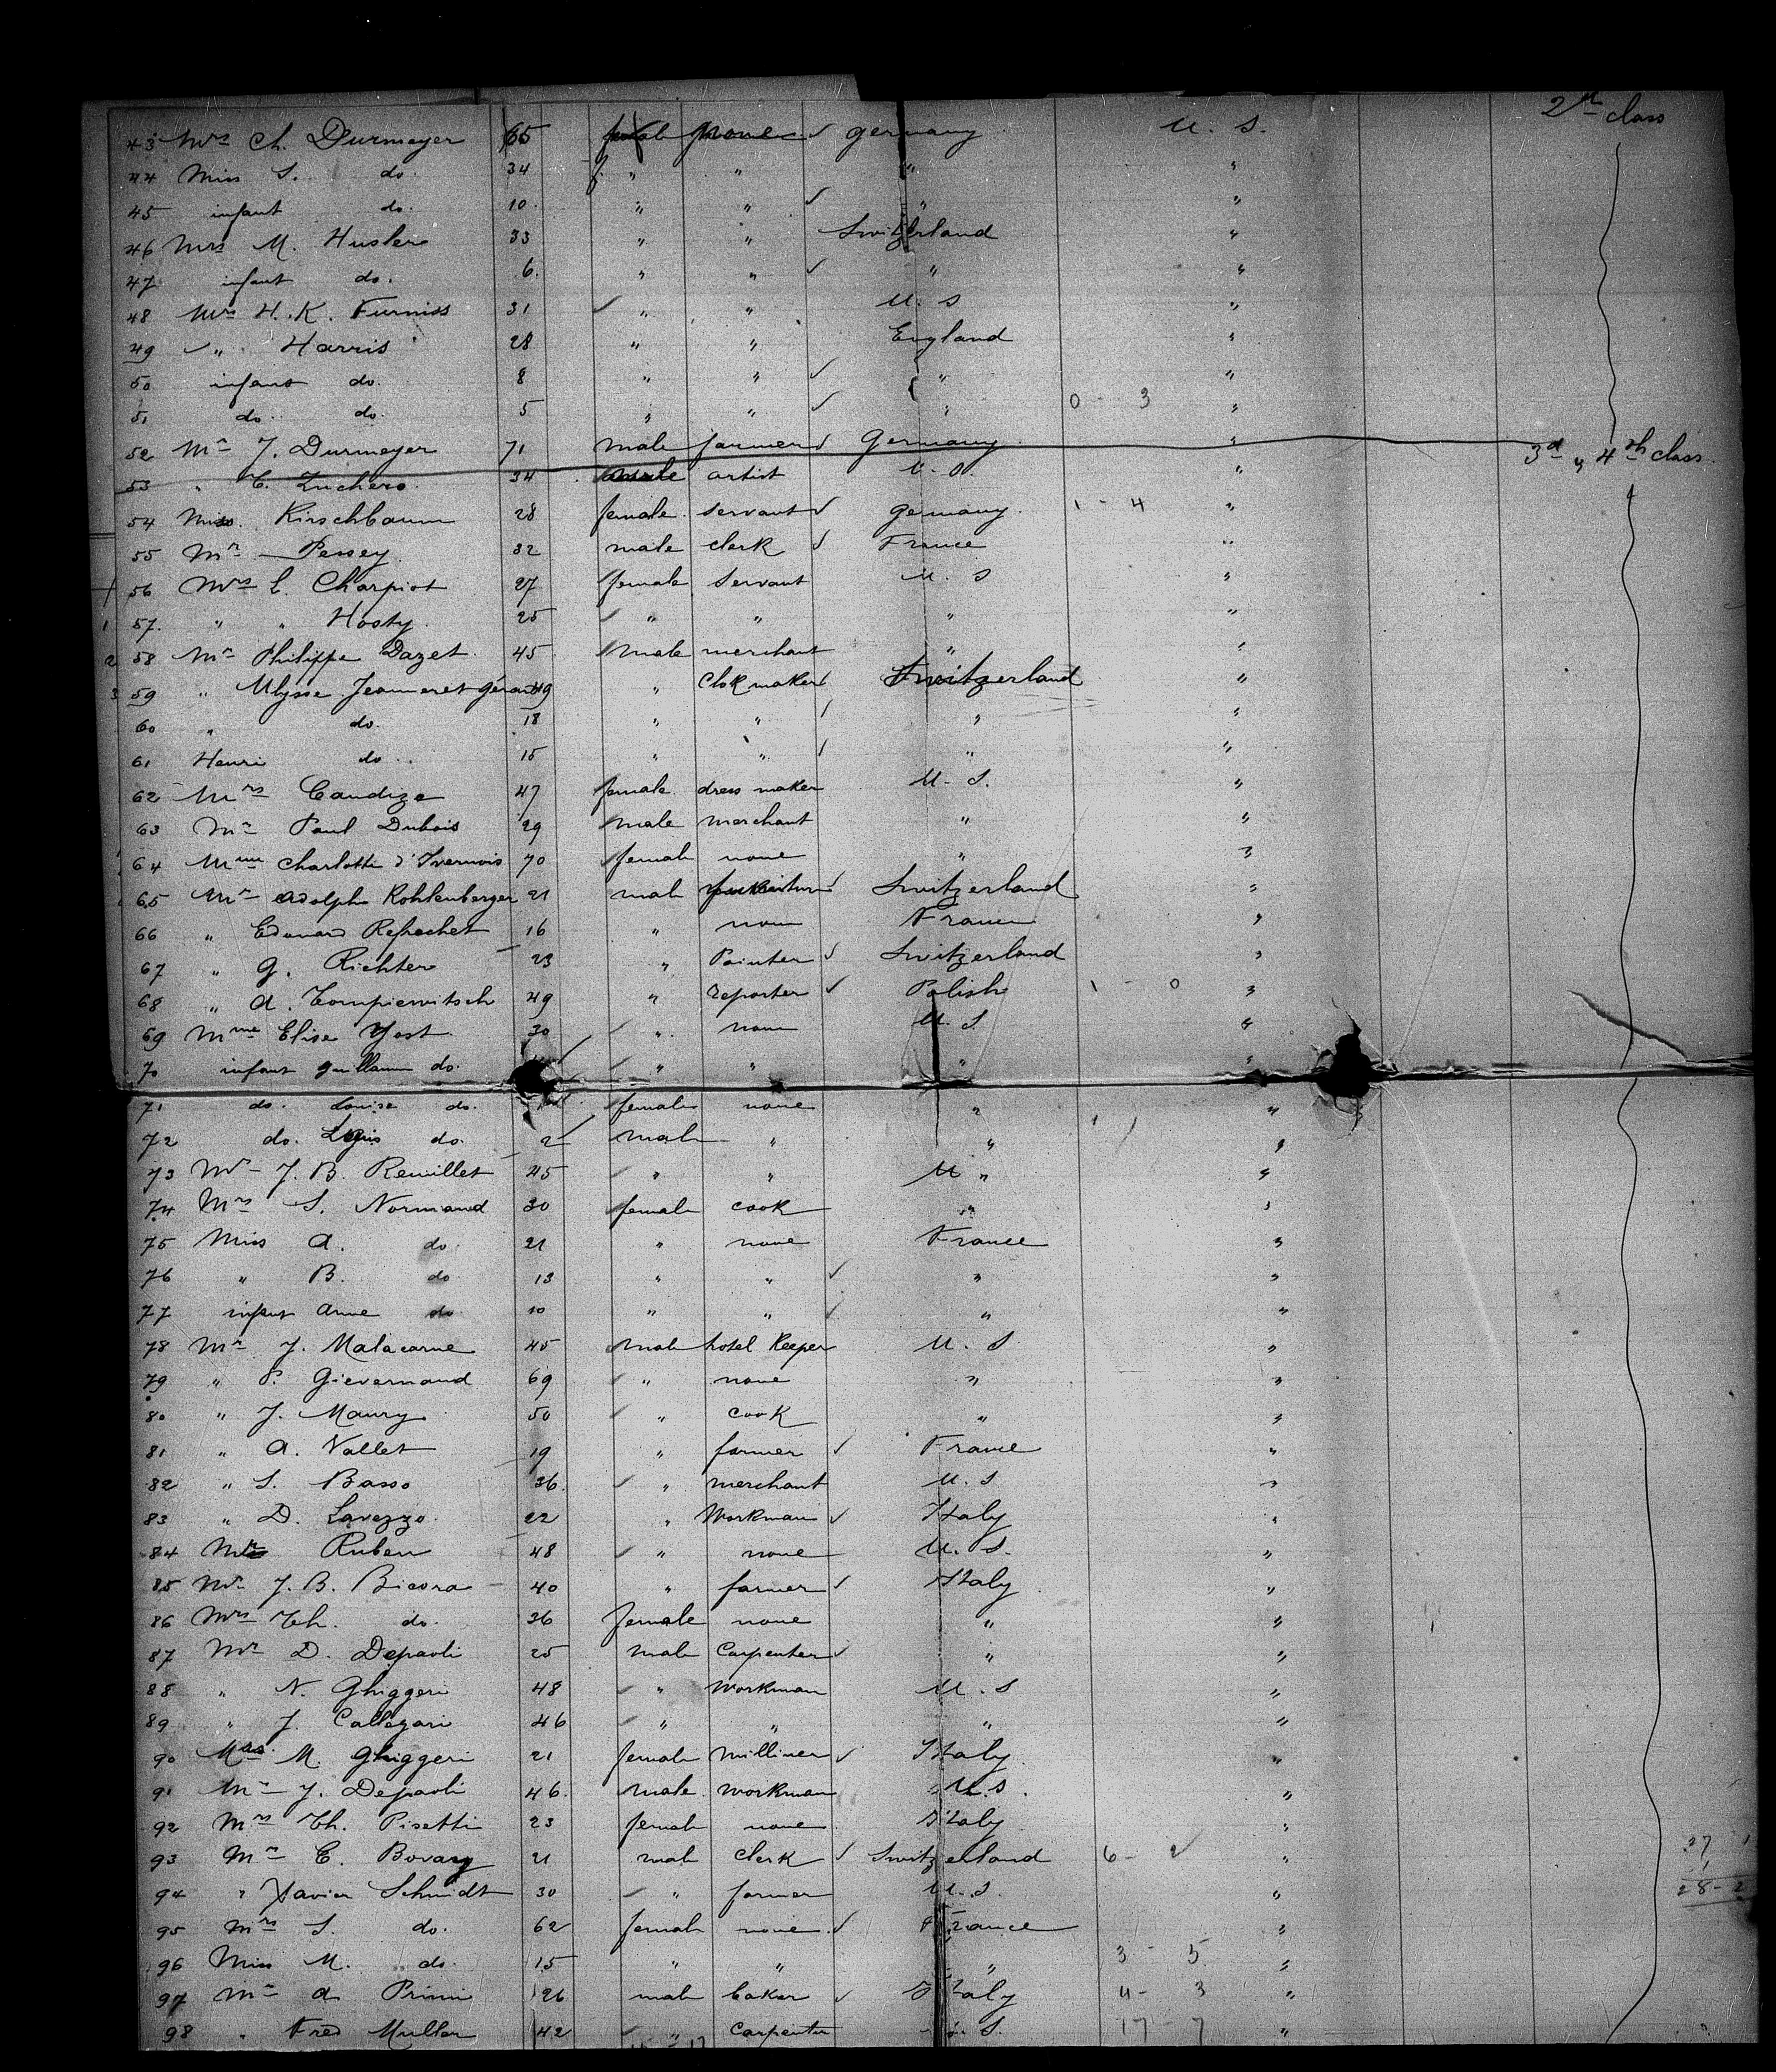 2d class
43 Mrs Ch. Durmeyer 65 female none germany U. S.
44 Miss S. do. 34 f. " " " "
45 infant do. 10. " " " "
46 Mrs M. Husler 33 " " Switzerland "
47 infant do. 6. " " " "
48 Mrs H. K. Furniss 31 " " U. S "
49 " Harris 28 " " England "
50 infant do. 8 " " " "
51 do. do. 5 " " " 0 - 3 "
52 Mr J. Durmeyer 71 male farmer Germany "
3d & 4th class
53 " C. Zuchero 34 male artist U. S. "
54 Miss. Kirschbaum 28 female servant germany 1 - 4 "
55 Mr Pessey 32 male clerk France "
56 Mrs C. Charpiot 27 female servant U. S "
1 57. " " Hosty 25 " " " "
2 58 Mr Philippe Dazet 45 male merchant " "
3 59 " Ulysse Jeanneret gérard 49 " Clokmaker Switzerland "
60 " do. 18 " " " "
61 Henri do. 15 " " " "
62 Mrs Candize 47 female dress maker U. S. "
63 Mr Paul Dubois 29 male merchant " "
64 Mme Charlotte d'Ivernois 70 female none " "
65 Mr Adolphe Kohlenberger 21 male Switzerland "
66 " Edouard 16 " none France "
67 " G. Richter 23 " Painter Switzerland "
68 " A. 49 " reporter Polish 1 - 0 "
69 Mme Elise Yost 30 " none U. S. "
70 infant guillaume do. " " " "
71 do. Louise do. female none " "
72 do. Louis do. 2 male " " "
73 Mr J. B. Revillet 45 " " U " "
74 Mrs S. Normand 30 female cook " "
75 Miss A. do. 21 " none France "
76 " B. do 13 " " " "
77 infant Anne do 10 " " " "
78 Mr J. Malacarne 45 male hotel Keeper U. S "
79 " P. Gievernaud 69 " none " "
80 " J. Maury 50 " cook " "
81 " A. Vallet 19 " farmer France "
82 " S. Basso 36. " merchant U. S "
83 " D. Lavezzo. 22 " Workman Italy "
84 Mr Ruben 48 " none U. S. "
85 Mr J. B. Bicora 40 " farmer Italy "
86 Mrs Th. do. 36 female none " "
87 Mr D. Depaoli 25 male Carpenter " "
88 " N. Ghiggeri 48 " Workman U. S "
89 " J. Callegari 46 " " " "
90 M. Ghiggeri 21 female milliner Italy "
91 Mr J. Depaoli 46. male workman U. S. "
92 Mrs Th. Pisetti 23 female none Italy "
93 Mr C. Bovary 21 male Clerk Switzerland 6 - 2 "
94 " Xavier Schmidt 30 " farmer U. S. " 28 - 2
95 Mrs S. do. 62 female none France "
96 Miss M. do. 15 " " " 3 - 5 "
97 Mr A Primi 26 male baker Italy 4 - 3 "
98 " Fred Muller 42 " Carpenter U. S. 17 - 7 "